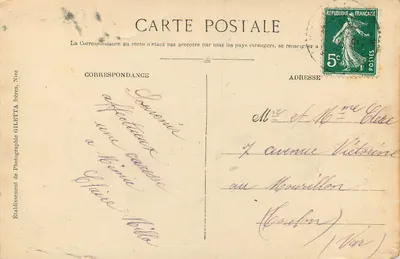 CARTE POSTALE
La Correspondance au recto n'étant pas acceptée par tous les pays étrangers, se renseigner à
RÉPUBLIQUE FRANÇAISE
5c
POSTES
CORRESPONDANCE
ADRESSE
Etablissement de Photographie GILETTA frères, Nice
Souvenir
affectueux
une caresse
à Mimie
Claire
Mr et Mme
7 avenue Victorine
au Mourillon
Toulon
(Var)